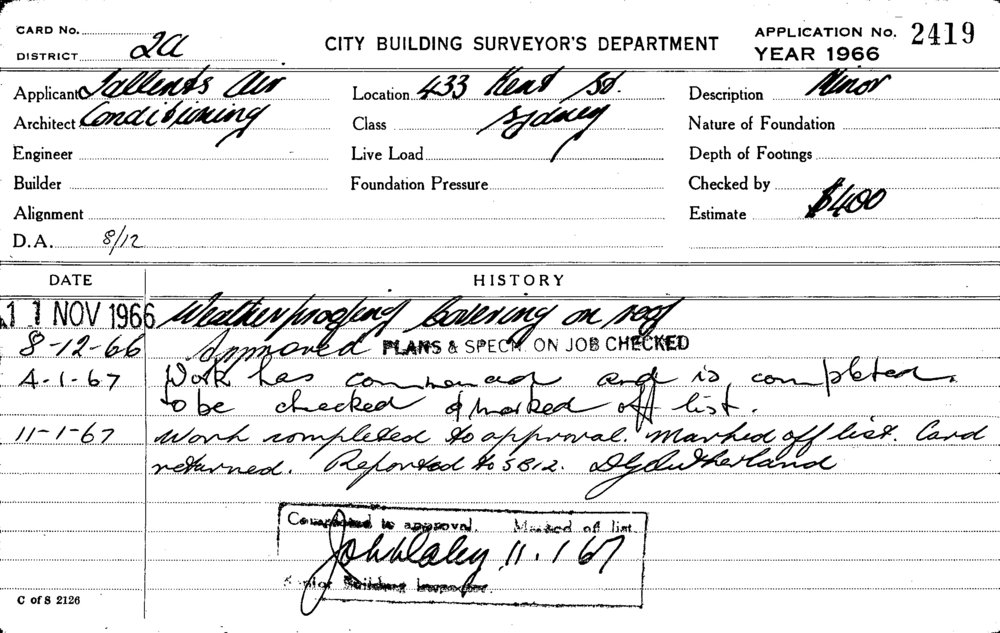 CARD No.
DISTRICT 2a
CITY BUILDING SURVEYOR'S DEPARTMENT
APPLICATION No. 2419
YEAR 1966
Applicant Tallents Air
Location 433 Kent St.
Description Minor
Architect Conditioning
Class Sydney
Nature of Foundation
Engineer
Live Load
Depth of Footings
Builder
Foundation Pressure
Checked by
Alignment
Estimate $400
D.A. 8/12
DATE HISTORY
11 NOV 1966 Weatherproofing Covering on roof
8-12-66 Approved PLANS & SPECN. ON JOB CHECKED
4-1-67 Work has commenced and is completed.
to be checked & marked off list.
11-1-67 Work completed to approval. Marked off list. Card
returned. Reported to SBI2. D G Sutherland
Completed to approval. Marked off list.
11.1.67
Senior Building Inspector.
C of S 2126